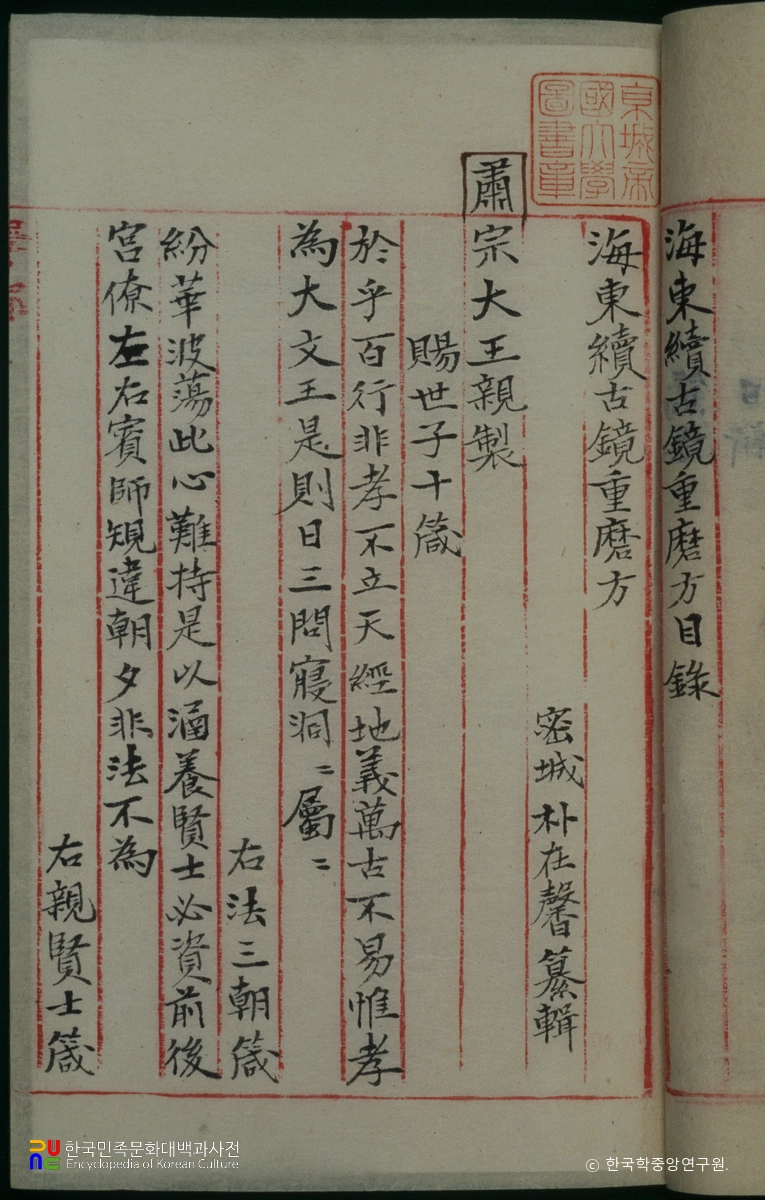 海東續古鏡重磨方目錄
京城帝
國大學
圖書章
海東續古鏡重磨方
密城 朴在馨纂輯
肅宗大王親製
賜世子十箴
於乎百行非孝不立天經地義萬古不易惟孝
為大文王是則日三問寢洞〻屬〻
右法三朝箴
紛華波蕩此心難持是以涵養賢士必資前後
宮僚左右賓師規違朝夕非法不為
右親賢士箴
한국민족문화대백과사전
Encyclopedia of Korean Culture
© 한국학중앙연구원.